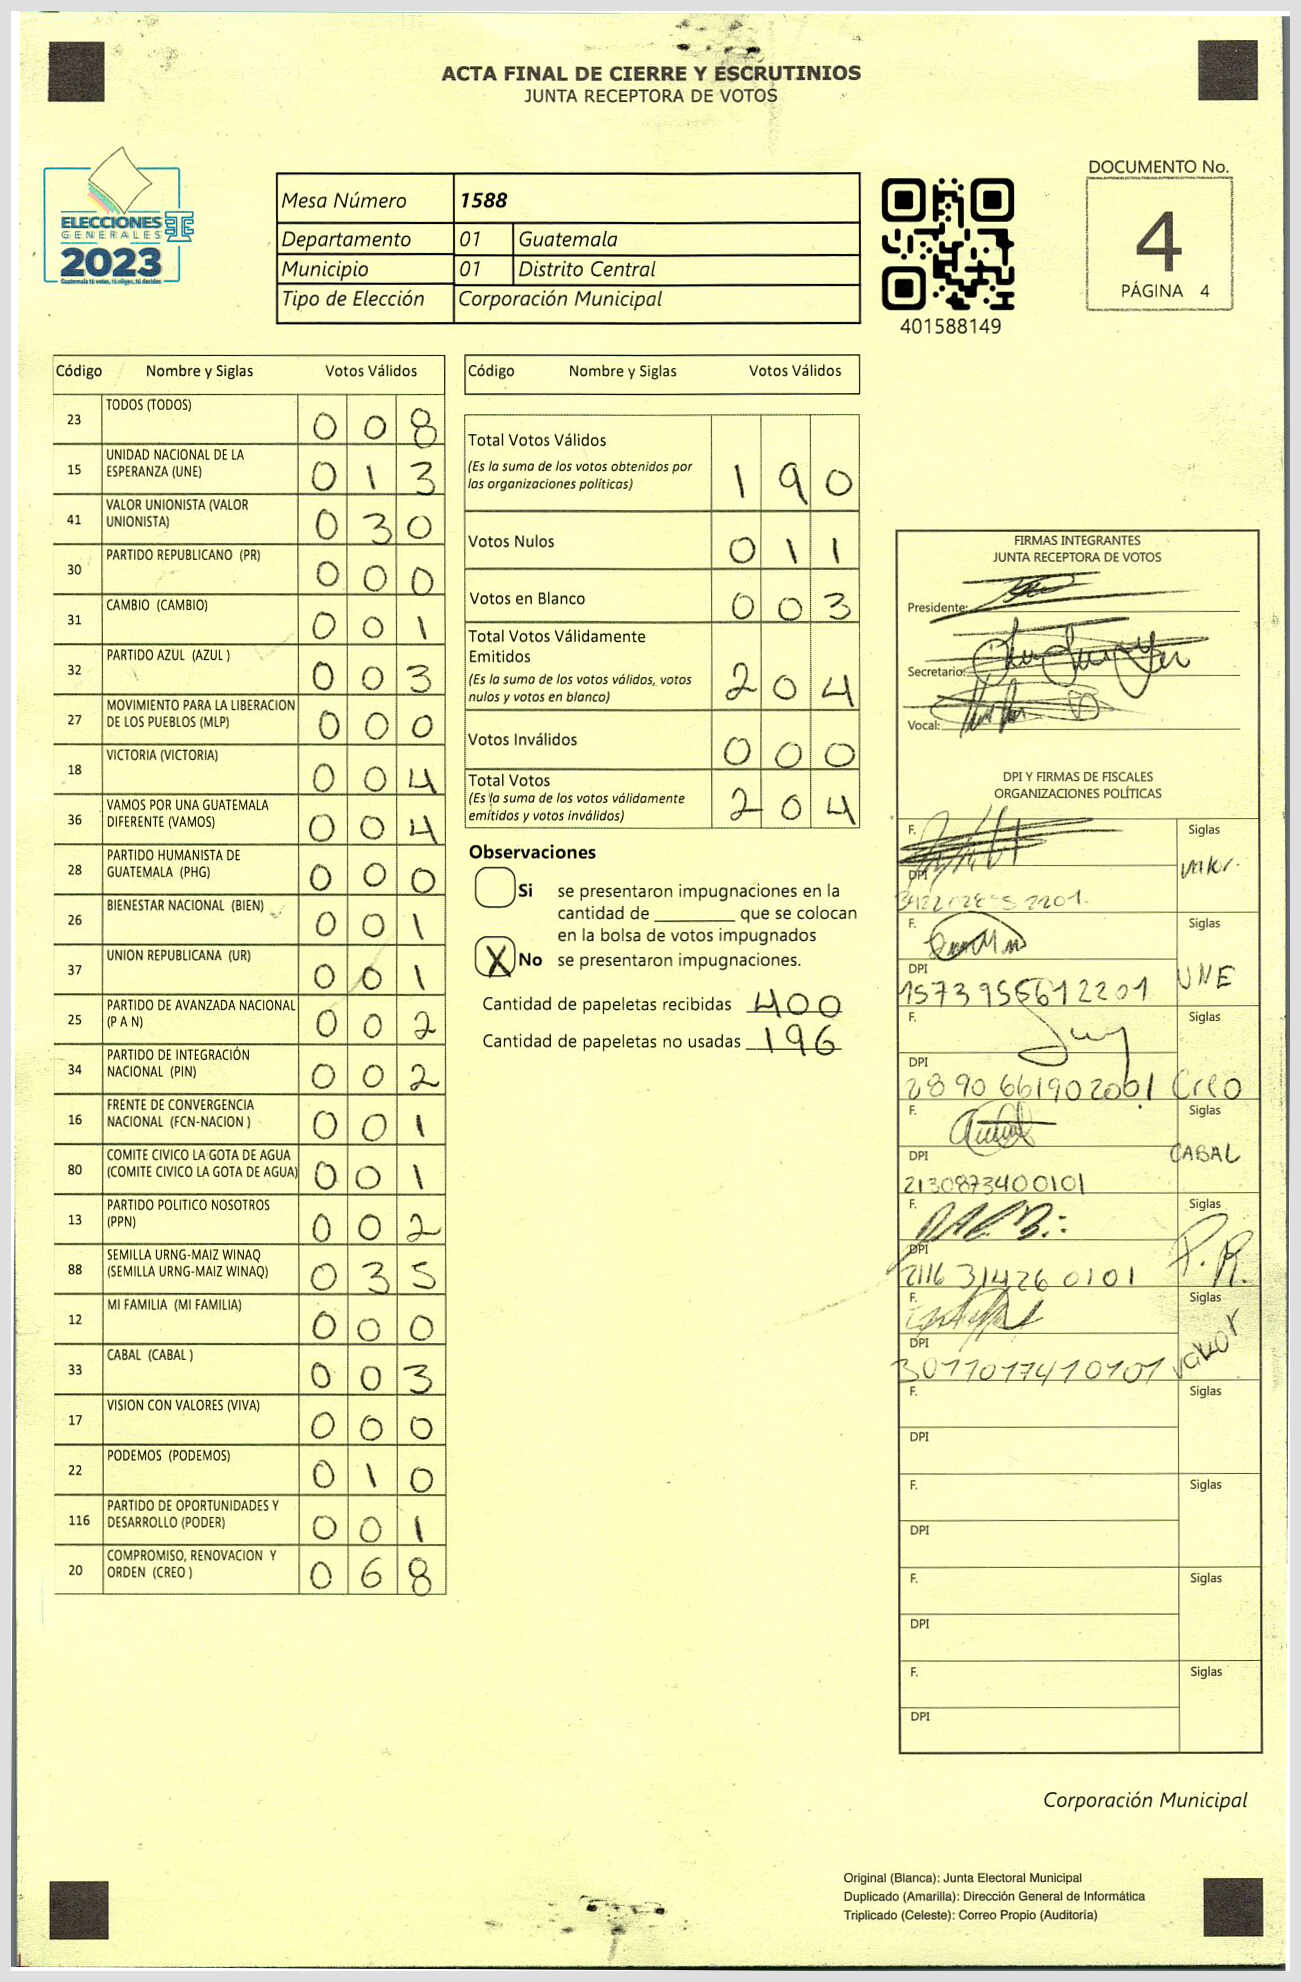 ACTA FINAL DE CIERRE Y ESCRUTINIOS
JUNTA RECEPTORA DE VOTOS
ELECCIONES
GENERALES
2023
Guatemala tú votas, tú eliges, tú decides
Mesa Número 1588
Departamento 01 Guatemala
Municipio 01 Distrito Central
Tipo de Elección Corporación Municipal
401588149
DOCUMENTO No.
4
PÁGINA 4
Código Nombre y Siglas Votos Válidos
23 TODOS (TODOS) 0 0 8
15 UNIDAD NACIONAL DE LA
ESPERANZA (UNE) 0 1 3
41 VALOR UNIONISTA (VALOR
UNIONISTA) 0 3 0
30 PARTIDO REPUBLICANO (PR) 0 0 0
31 CAMBIO (CAMBIO) 0 0 1
32 PARTIDO AZUL (AZUL ) 0 0 3
27 MOVIMIENTO PARA LA LIBERACION
DE LOS PUEBLOS (MLP) 0 0 0
18 VICTORIA (VICTORIA) 0 0 4
36 VAMOS POR UNA GUATEMALA
DIFERENTE (VAMOS) 0 0 4
28 PARTIDO HUMANISTA DE
GUATEMALA (PHG) 0 0 0
26 BIENESTAR NACIONAL (BIEN) 0 0 1
37 UNION REPUBLICANA (UR) 0 0 1
25 PARTIDO DE AVANZADA NACIONAL
(P A N) 0 0 2
34 PARTIDO DE INTEGRACIÓN
NACIONAL (PIN) 0 0 2
16 FRENTE DE CONVERGENCIA
NACIONAL (FCN-NACION ) 0 0 1
80 COMITE CIVICO LA GOTA DE AGUA
(COMITE CIVICO LA GOTA DE AGUA) 0 0 1
13 PARTIDO POLITICO NOSOTROS
(PPN) 0 0 2
88 SEMILLA URNG-MAIZ WINAQ
(SEMILLA URNG-MAIZ WINAQ) 0 3 5
12 MI FAMILIA (MI FAMILIA) 0 0 0
33 CABAL (CABAL ) 0 0 3
17 VISION CON VALORES (VIVA) 0 0 0
22 PODEMOS (PODEMOS) 0 1 0
116 PARTIDO DE OPORTUNIDADES Y
DESARROLLO (PODER) 0 0 1
20 COMPROMISO, RENOVACION Y
ORDEN (CREO ) 0 6 8
Código Nombre y Siglas Votos Válidos
Total Votos Válidos
(Es la suma de los votos obtenidos por
las organizaciones políticas) 1 9 0
Votos Nulos 0 1 1
Votos en Blanco 0 0 3
Total Votos Válidamente
Emitidos
(Es la suma de los votos válidos, votos
nulos y votos en blanco) 2 0 4
Votos Inválidos 0 0 0
Total Votos
(Es la suma de los votos válidamente
emitidos y votos inválidos) 2 0 4
Observaciones
Si se presentaron impugnaciones en la
cantidad de ________ que se colocan
en la bolsa de votos impugnados
X No se presentaron impugnaciones.
Cantidad de papeletas recibidas 400
Cantidad de papeletas no usadas 196
FIRMAS INTEGRANTES
JUNTA RECEPTORA DE VOTOS
Presidente:
Secretario:
Vocal:
DPI Y FIRMAS DE FISCALES
ORGANIZACIONES POLÍTICAS
F. Siglas
valor.
DPI
F. Siglas
DPI UNE
1573955612201
F. Siglas
DPI
2890661902001 Creo
F. Siglas
DPI CABAL
2130873400101
F. Siglas
DPI P.R.
2116314260101
F. Siglas
DPI valor
3011017410101
F. Siglas
DPI
F. Siglas
DPI
F. Siglas
DPI
F. Siglas
DPI
Corporación Municipal
Original (Blanca): Junta Electoral Municipal
Duplicado (Amarilla): Dirección General de Informática
Triplicado (Celeste): Correo Propio (Auditoría)